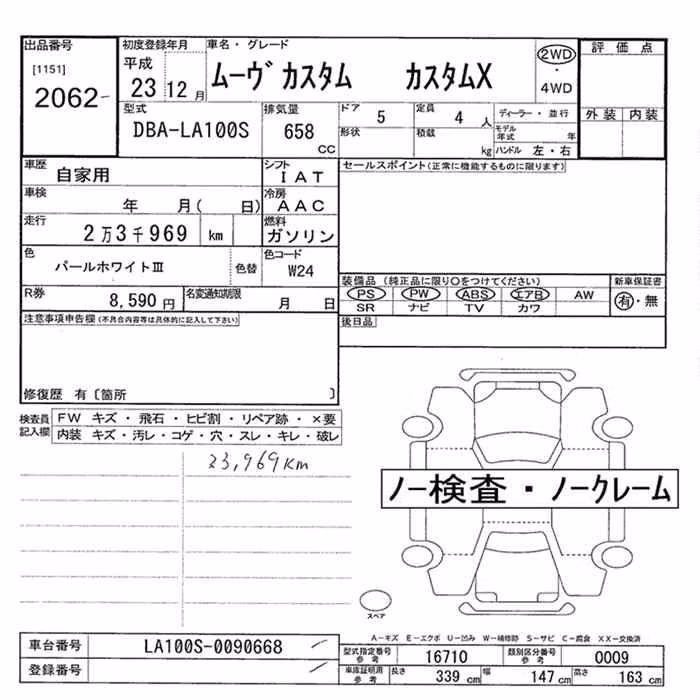 出品番号 初度登録年月 車名・グレード 評価点
[1151]
2062
平成 23 12 月
ムーヴカスタム カスタムX
2WD
・
4WD
外装 内装
型式 DBA-LA100S
排気量 658 CC
ドア 5
定員 4 人
ディーラー・並行
形状
積載 kg
モデル年式 年
ハンドル 左・右
車歴 自家用
シフト IAT
セールスポイント(正常に機能するものに限ります)
車検 年 月( 日)
冷房 AAC
走行 2万3千969 km
燃料 ガソリン
色 パールホワイトⅢ
色替
色コード W24
装備品(純正品に限り○をつけてください) 新車保証書
PS PW ABS エアB AW
SR ナビ TV カワ
有・無
R券 8,590円
名変通知期限 月 日
後日品
注意事項申告欄(不具合内容等は具体的に記入して下さい)
修復歴 有〔箇所 〕
検査員記入欄
FW キズ・飛石・ヒビ割・リペア跡・×要
内装 キズ・汚レ・コゲ・穴・スレ・キレ・破レ
23,969Km
ノー検査・ノークレーム
スペア
A-キズ E-エクボ U-凹み W-補修跡 S-サビ C-腐食 XX-交換済
車台番号 LA100S-0090668
登録番号
型式指定番号参考 16710
類別区分番号参考 0009
車庫証明用参考 長さ 339 cm 幅 147 cm 高さ 163 cm